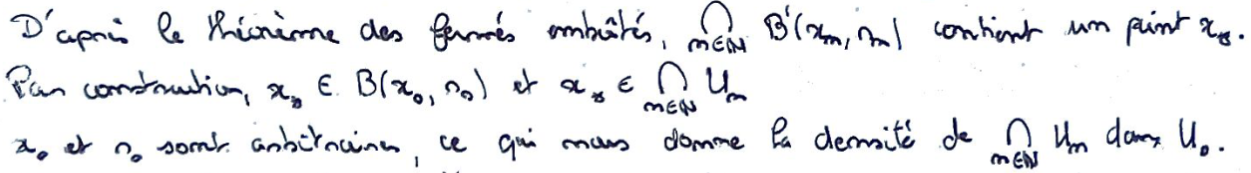 D'après le théorème des fermés emboîtés, ⋂_{n∈ℕ} B'(x_n, r_n) contient un point x_∞.
Par construction, x_∞ ∈ B(x_0, r_0) et x_∞ ∈ ⋂_{n∈ℕ} U_n
x_0 et r_0 sont arbitraires, ce qui nous donne la densité de ⋂_{n∈ℕ} U_n dans U_0.